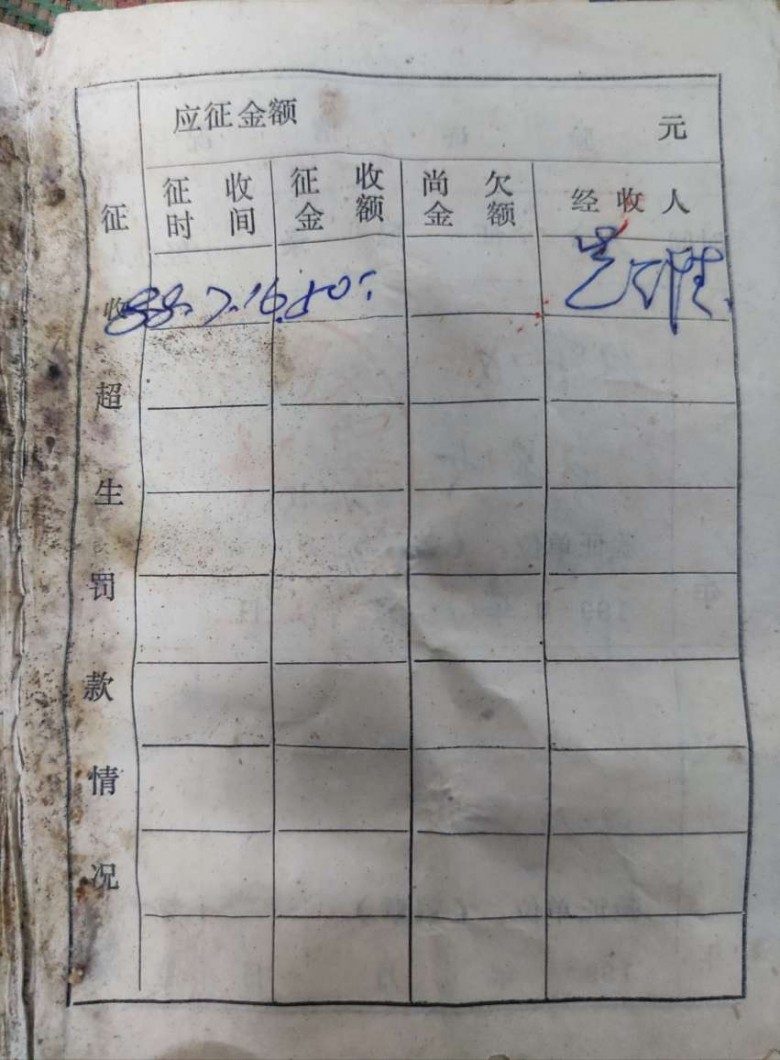 征收超生罚款情况
应征金额 元
征收时间 征收金额 尚欠金额 经收人
88.7.16 50